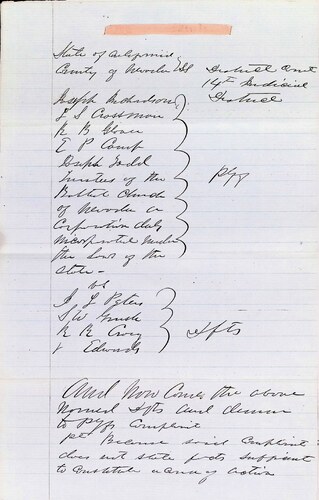 State of California
County of Nevada } SS
District Court
14th Judicial
District
Joseph Richardson
J S Crossman
R B Glover
E P Camp
Joseph Todd
Trustees of the
Baptist Church
of Nevada a
Corporation duly
incorporated under
the Law of the
State -
Plffs
vs
S W
&  Edwards
Dfts
And Now Comes the above
Named Dfts and demur
to Plffs Complaint
1st Because said Complaint
does not state facts sufficient
to constitute a cause of action